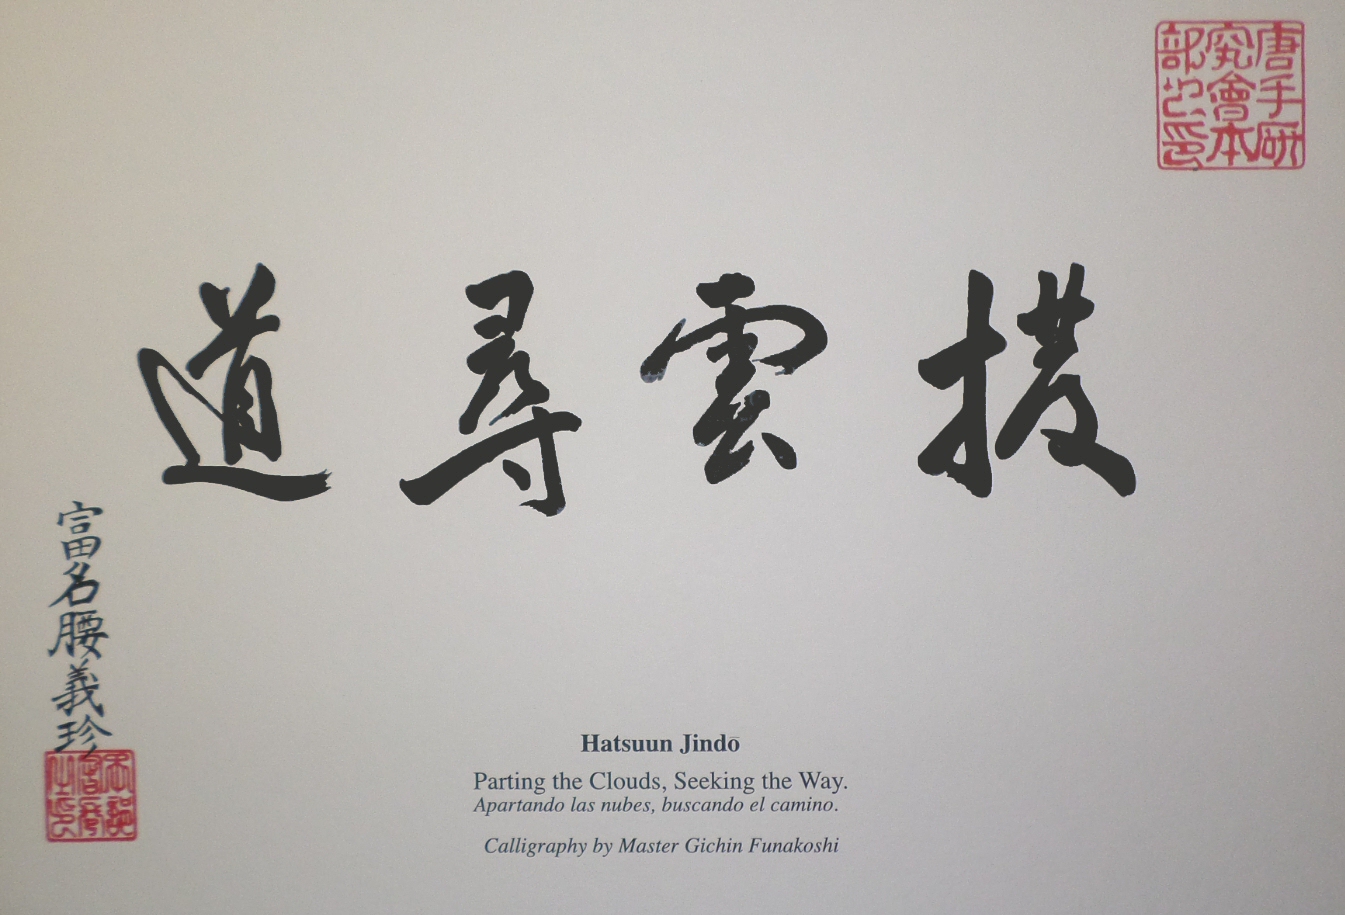 唐手研
究會本
部之印
撥雲尋道
富名腰義珍
Hatsuun Jindō
Parting the Clouds, Seeking the Way.
Apartando las nubes, buscando el camino.
Calligraphy by Master Gichin Funakoshi